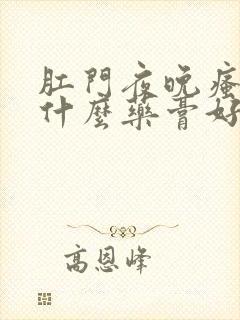 肛門夜晚瘙
什麼藥膏好
高恩峰